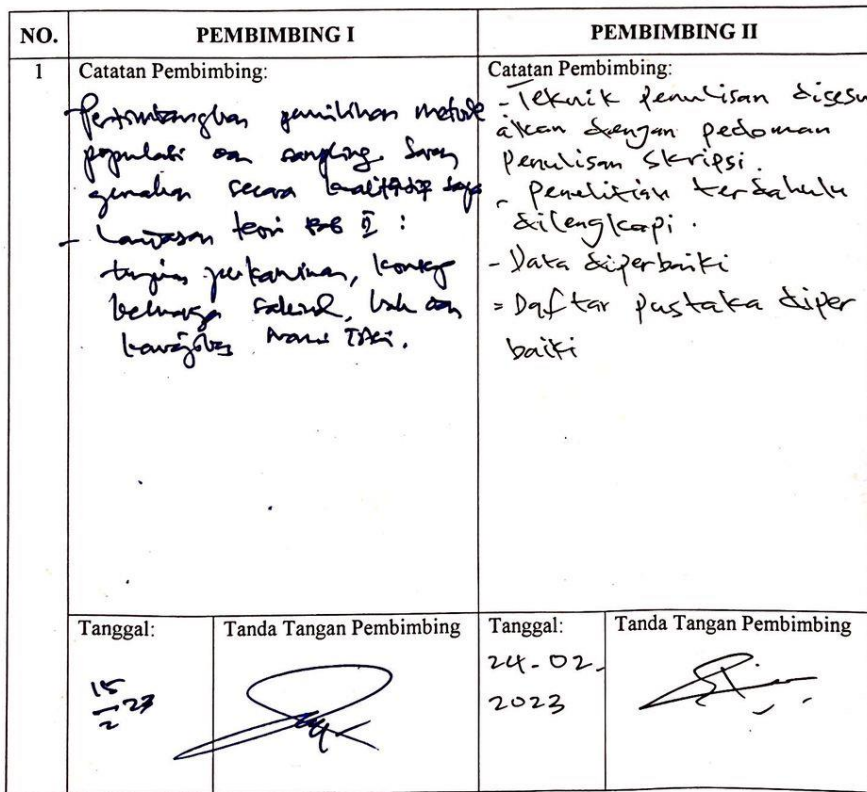 NO.
PEMBIMBING I
PEMBIMBING II
1
Catatan Pembimbing:
- Pertimbangkan pemilihan metode
populasi dan sampling. Saran
gunakan secara kualitatip saja
- Landasan teori BAB II :
tujuan perkawinan, konsep
keluarga sakinah, hak dan
kewajiban
Catatan Pembimbing:
- Teknik penulisan disesu
aikan dengan pedoman
Penulisan Skripsi.
- Penelitian terdahulu
dilengkapi.
- Data diperbaiki
= Daftar pustaka diper
baiki
Tanggal:
15/2 23
Tanda Tangan Pembimbing
Tanggal:
24-02-
2023
Tanda Tangan Pembimbing